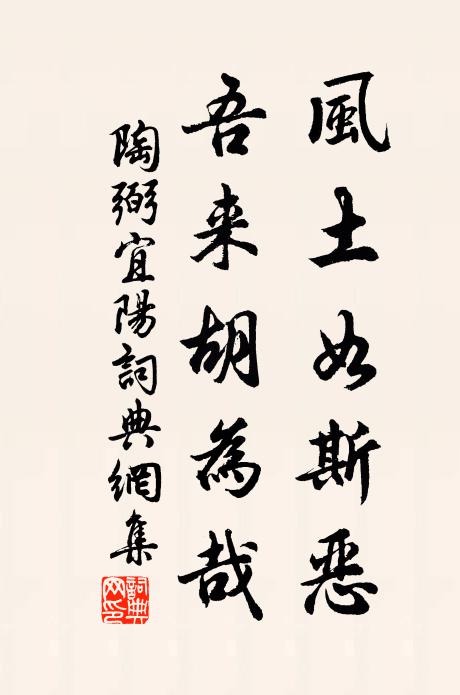 風土如斯惡
吾来胡為哉
陶弼宜陽詞典網集
詞典網印